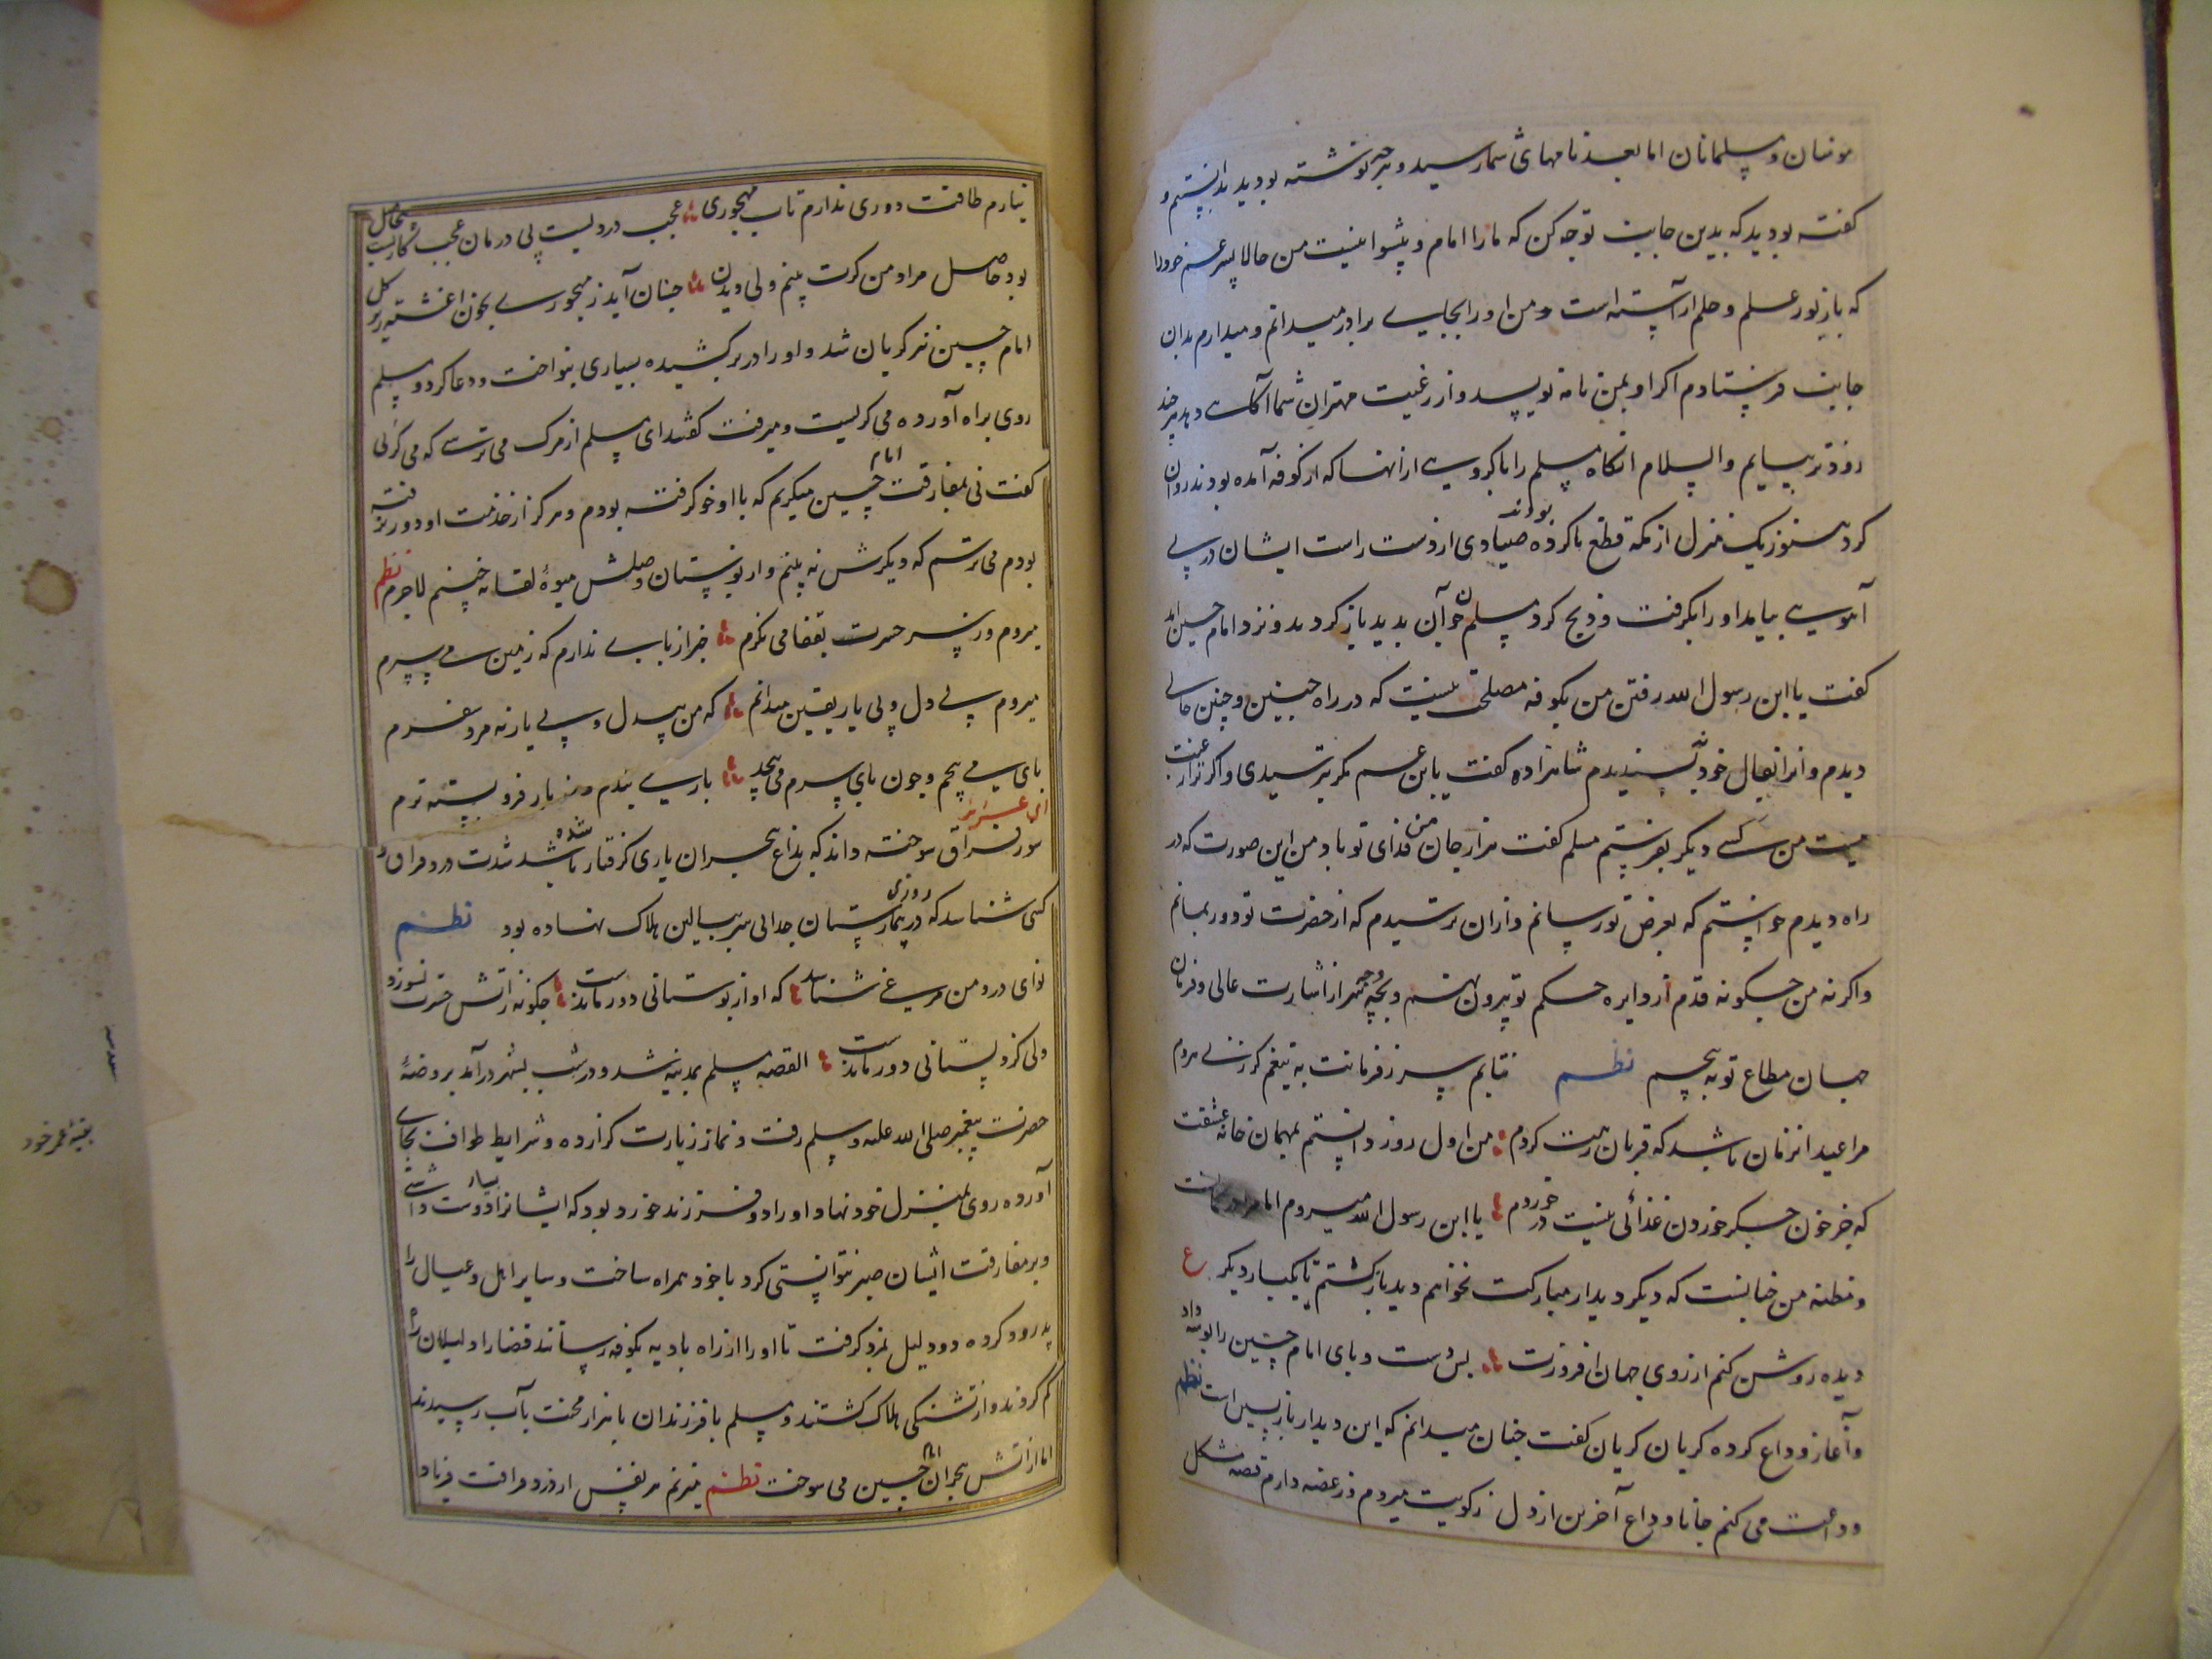 مومنان و مسلمانان اما بعد نامهای شما رسید و هر چه نوشته بودید بدانستم و
کفته بودید که بدین جانب توجه کن که ما را امام و پیشوا نیست من حالا پسر عم خود را
که بازیور علم و حلم آراسته است و من او را بجای برادر میدانم و میدارم بدان
جانب فرستادم اکر او بمن نامه نویسد و از رغبت مهتران شما آکاهی دهد هر چند
زودتر بیایم والسلام انکاه مسلم را با کروهی از انها که از کوفه آمده بودند روان
کرد هنوز یک منزل از مکه قطع ناکرده بودند صیادی از دست راست ایشان در پی
آهویی بیامد او را بکرفت و ذبح کرد مسلم چون آن بدید باز کردید و نزد امام حسین آمد
کفت یا ابن رسول الله رفتن من بکوفه مصلحت نیست که در راه چنین و چنین حالی
دیدم و انرا بفال خود نپسندیدم شاهزاده کفت یا بن عم مکر بترسیدی و اکر ترا رغبت
نیست من کسی دیکر بفرستم مسلم کفت هزار جان من فدای تو باد من این صورت که در
راه دیدم خواستم که بعرض تو رسانم و ازان ترسیدم که از حضرت تو دور بمانم
و اکر نه من چکونه قدم از دایره حکم تو بیرون نهم و بچه وجه سر از اشارت عالی و فرمان
جهان مطاع تو بپیچم نظم نتابم سر ز فرمانت به تیغم کر زنی هردم
مرا عید انزمان باشد که قربان رهت کردم من اول روز دانستم بمهمان خانه عشقت
که جز خون جکر خوردن غذائی نیست در خوردم یا ابن رسول الله میروم اما
و مظنه من چنانست که دیکر دیدار مبارکت نخواهم دید باز کشتم تا یکبار دیکر ع
دیده روشن کنم از روی جهان افروزت پس دست و پای امام حسین را بوسه داد
و آغاز وداع کرده کریان کریان کفت چنان میدانم که این دیدار باز پسین است نظم
وداعت می کنم جانا وداع آخرین از دل ز کویت میروم وز غصه دارم قصه مشکل
نیارم طاقت دوری ندارم تاب مهجوری عجب دردیست بی درمان عجب کاریست بیحاصل
بود حاصل مراد من کرت بینم ولی دیدن چنان آید ز مهجوری بخون اغشته زیر کل
امام حسین نیز کریان شد و او را در بر کشیده بسیاری بنواخت و دعا کرد و مسلم
روی براه آورده می کریست و میرفت کفتند ای مسلم از مرک می ترسی که می کریی
کفت نی بمفارقت امام حسین میکریم که با او خو کرفته بودم و هرکز از خدمت او دور نرفته
بودم می ترسم که دیکرش نه بینم و از بوستان وصلش میوۀ لقا نه چینم لاجرم نظم
میروم وز سر حسرت بقفا می نکرم خبر از پای ندارم که زمین می سپرم
میروم بی دل و بی یار یقین میدانم که من بیدل و بی یار نه مرد سفرم
پای می پیچم و چون پای سرم می پیچد بار می بندم و از بار فرو بسته ترم
ای عزیز
سوز فراق سوخته داند که بداغ هجران یاری کرفتار شده باشد شدت درد فراق را
کسی شناسد که روزی در بیمارستان جدایی سر ببالین هلاک نهاده بود نظم
نوای درد من مرغی شناسد که او از بوستانی دور ماندست چکونه زاتش حسرت نسوزد
ولی کز دلستانی دور ماندست القصه مسلم بمدینه شد و در شب بشهر درآمد بروضۀ
حضرت پیغمبر صلی الله علیه وسلم رفت و نماز زیارت کزارده و شرایط طواف بجای
آورده روی بمنزل خود نهاد و او را دو فرزند خورد بود که ایشانرا بسیار دوست داشتی
و بر مفارقت ایشان صبر نتوانستی کرد با خود همراه ساخت و سایر اهل و عیال را
بدرود کرده دو دلیل بمزد کرفت تا او را از راه بادیه بکوفه رسانند قضا را دلیلان راه
کم کردند و از تشنکی هلاک کشتند و مسلم با فرزندان با هزار محنت بآب رسیدند
اما از اتش هجران امام حسین می سوخت نظم میزنم هر نفس از درد فراقت فریاد
بقیه عمر خود